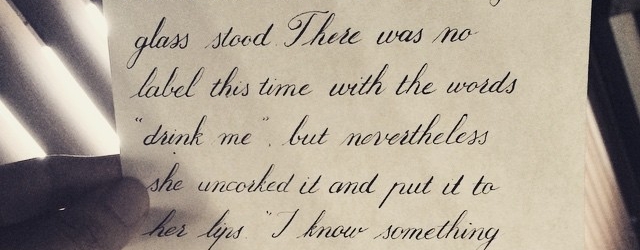 glass stood There was no
label this time with the words
"drink me". but nevertheless
she uncorked it and put it to
her lips "I know something